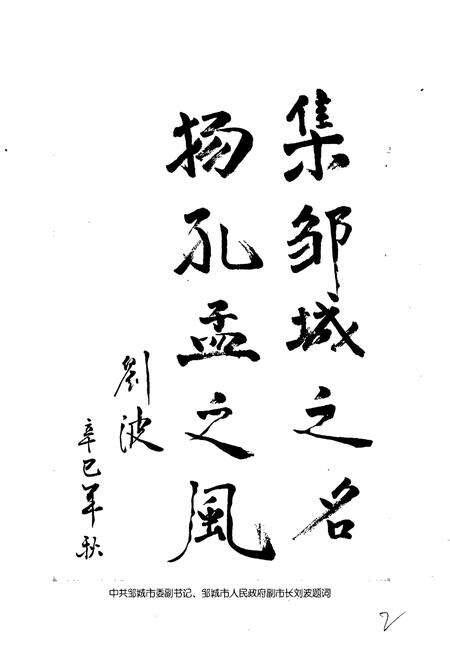 集邹城之名
扬孔孟之风
劉波
辛巳年秋
中共邹城市委副书记、邹城市人民政府副市长刘波题词
2